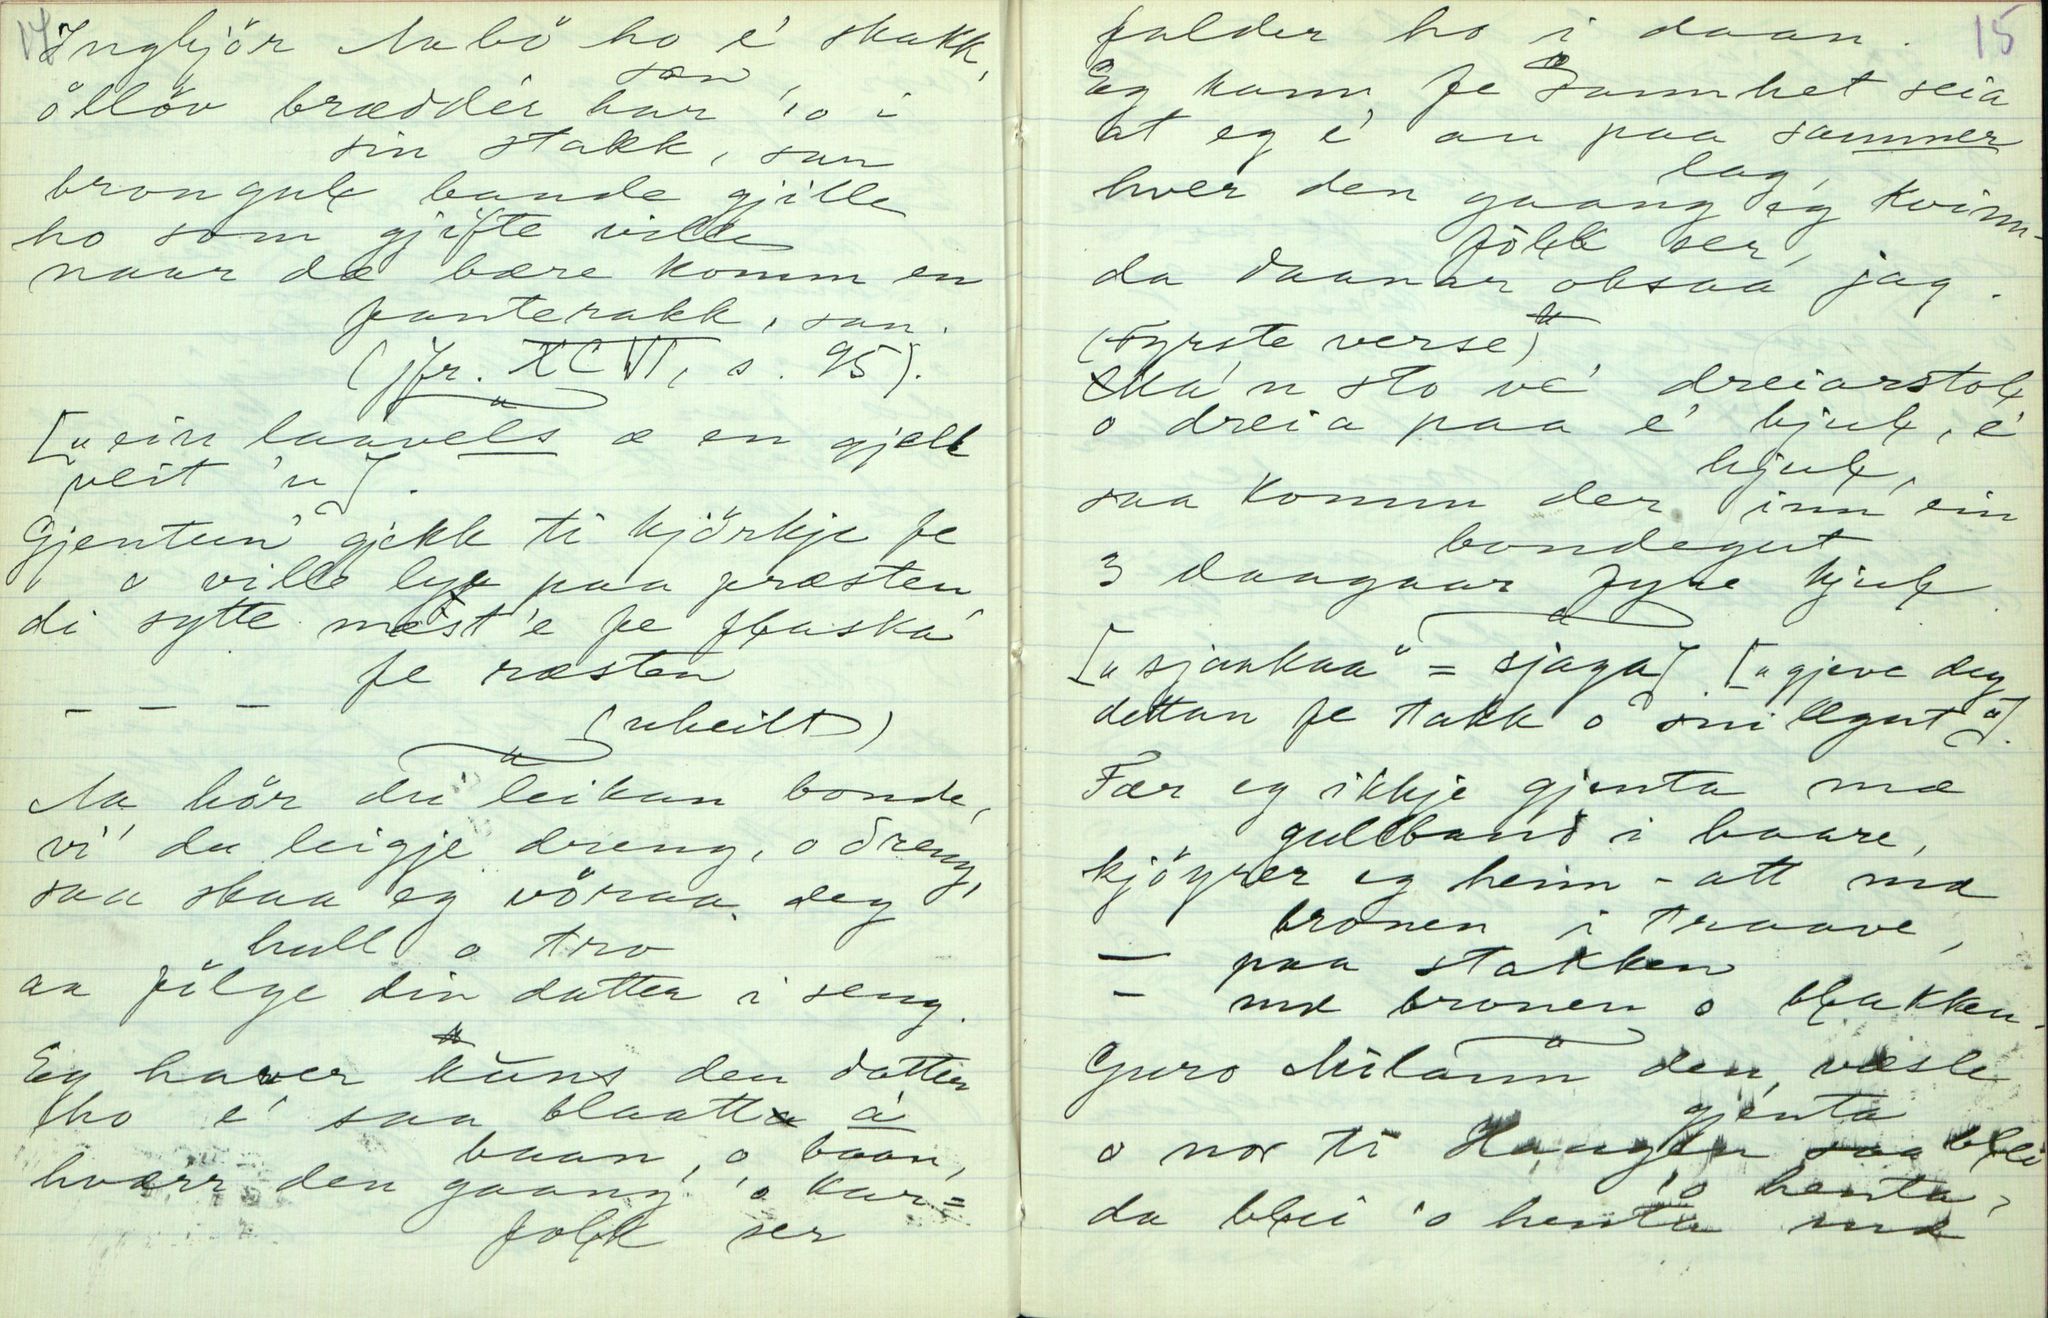 14
Ingbjör Nabö ho e' skakk,
san
ölløv bræddér har 'o i
sin stakk, san
brongule bande gjille
ho som gjifte ville
naar dæ bære komm en
fanterakk, san.
(jfr. XCVI, s. 95).
["ein laavels æ en gjell
veit 'u"].
Gjentun' gjekk ti kjörkje fe
o ville lye paa præsten
di sytte mæst 'e fe flaska'
fe ræsten
– – –
(uheilt)
Na hör du leikan bonde,
vi' du leigje dreng, o dreng,
saa skaa eg vöraa deg
hull o tro
aa fölge din datter i seng.
Eg haver kuns den datter
ho e' saa blaatt á
baan, o baan,
hværr den gaang 'o kar=
folk ser
15
falder ho i daan.
Eg kann fe Sannhet seia
at eg e' au paa sammer
lag,
hver den gaang eg kvinn-
fölk ser,
da daanar obsaa jag.
(Fyrste verse)
Eka'n sto ve' dreiarstol
o dreia paa e' hjul, e'
hjul,
saa komm der inn ein
bondegut
3 daagaar fyre hjul
["sjaakaa" = sjaga] ["gjeve deg
dettan fe takk o snillgut"].
Fær eg ikkje gjenta mæ
gullband i haare,
kjöyrer eg heim-att mæ
bronen i traave,
— paa stakken
– mæ bronen o blakken.
Guro Milann den væsle
gjenta
o nor ti Haugen saa blei
'o henta,
da blei 'o henta mæ